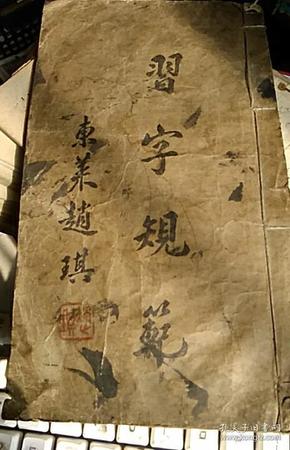 習字規範
東萊趙琪
孔夫子旧书网